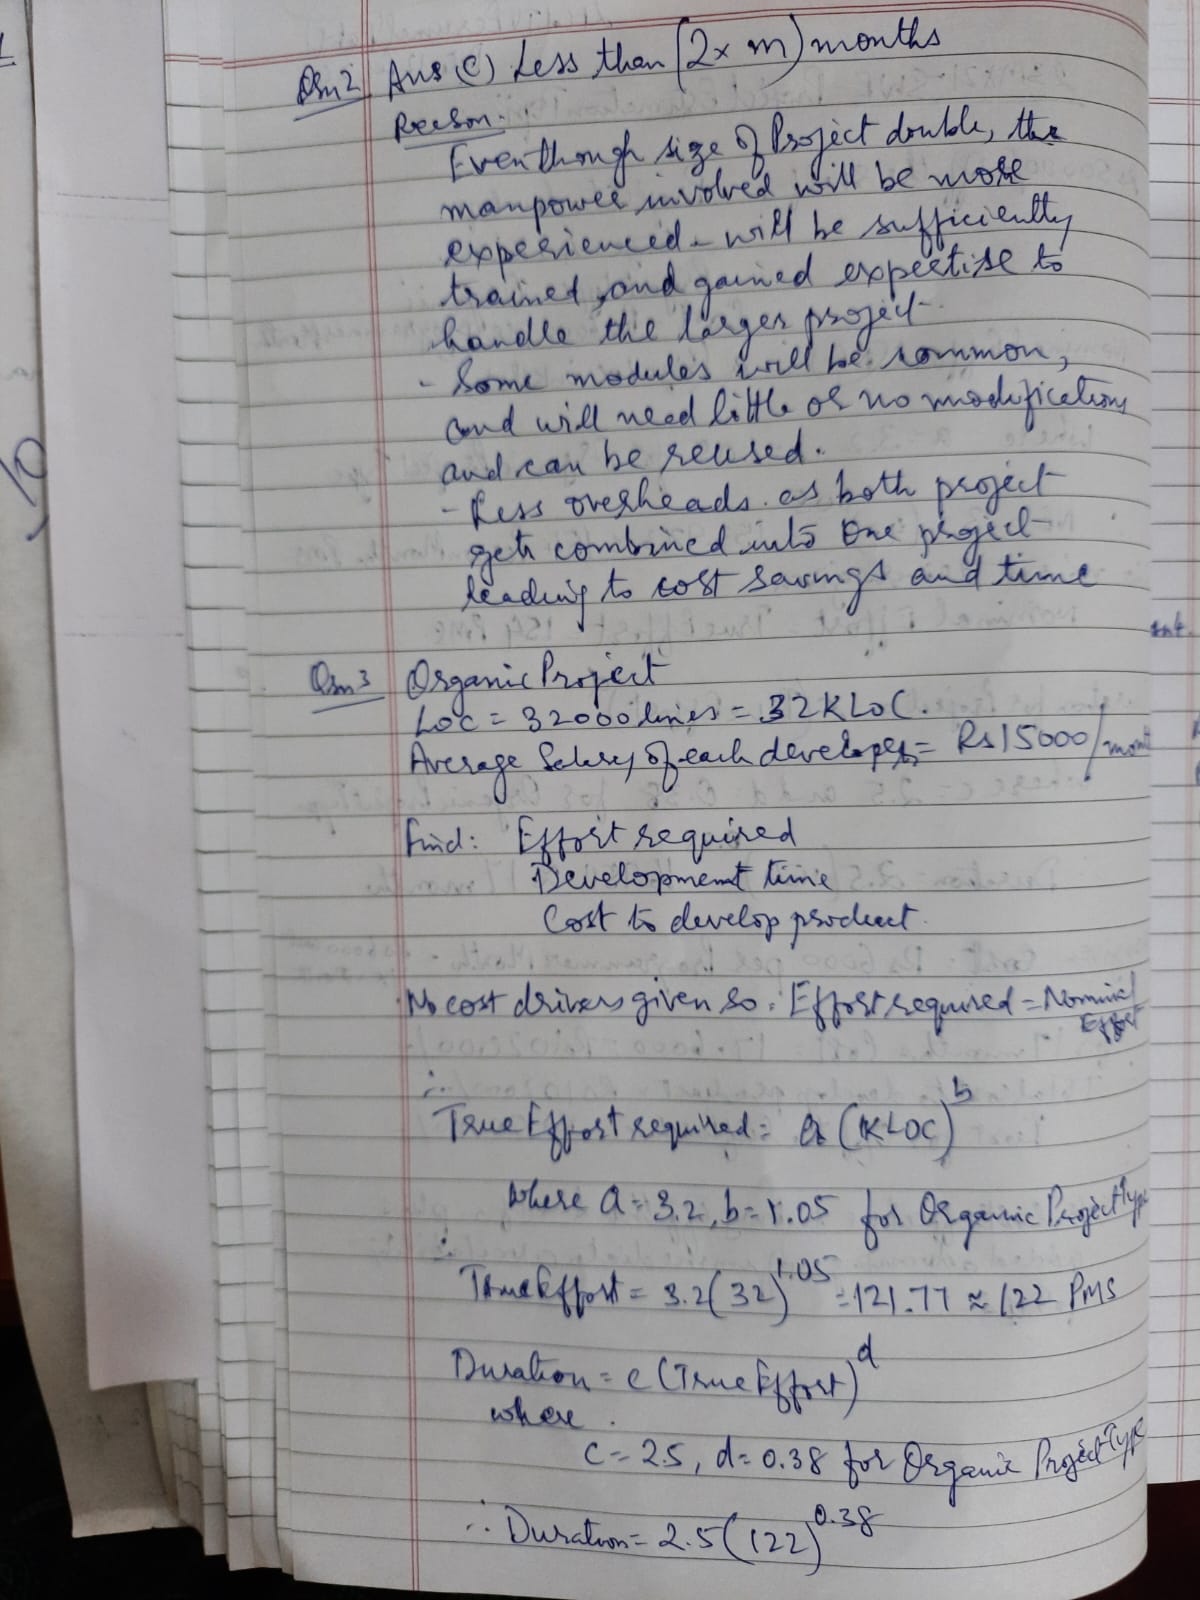 Qsn2 Ans (C) Less than (2 x m) months
Reason.
Eventhough size of Project double, the
manpower involved will be more
experienced - will be sufficiently
trained, and gained expertise to
handle the larger project.
- Some modules will be common,
and will need little or no modifications
and can be reused.
- Less overheads as both project
gets combined into one project
leading to cost savings and time
Qsn3 Organic Project
LOC = 32000 lines = 32KLOC.
Average Salary of each developer = Rs 15000/month
Find: Effort required
Development time
Cost to develop product.
No cost drivers given so, Effort required = Nominal
Effort
∴
True Effort required = a (KLOC)^b
where a = 3.2, b = 1.05 for Organic Project Type
∴
True Effort = 3.2(32)^1.05 = 121.77 ≈ 122 PMS
Duration = c (True Effort)^d
where
c = 2.5, d = 0.38 for Organic Project Type
∴ Duration = 2.5(122)^0.38